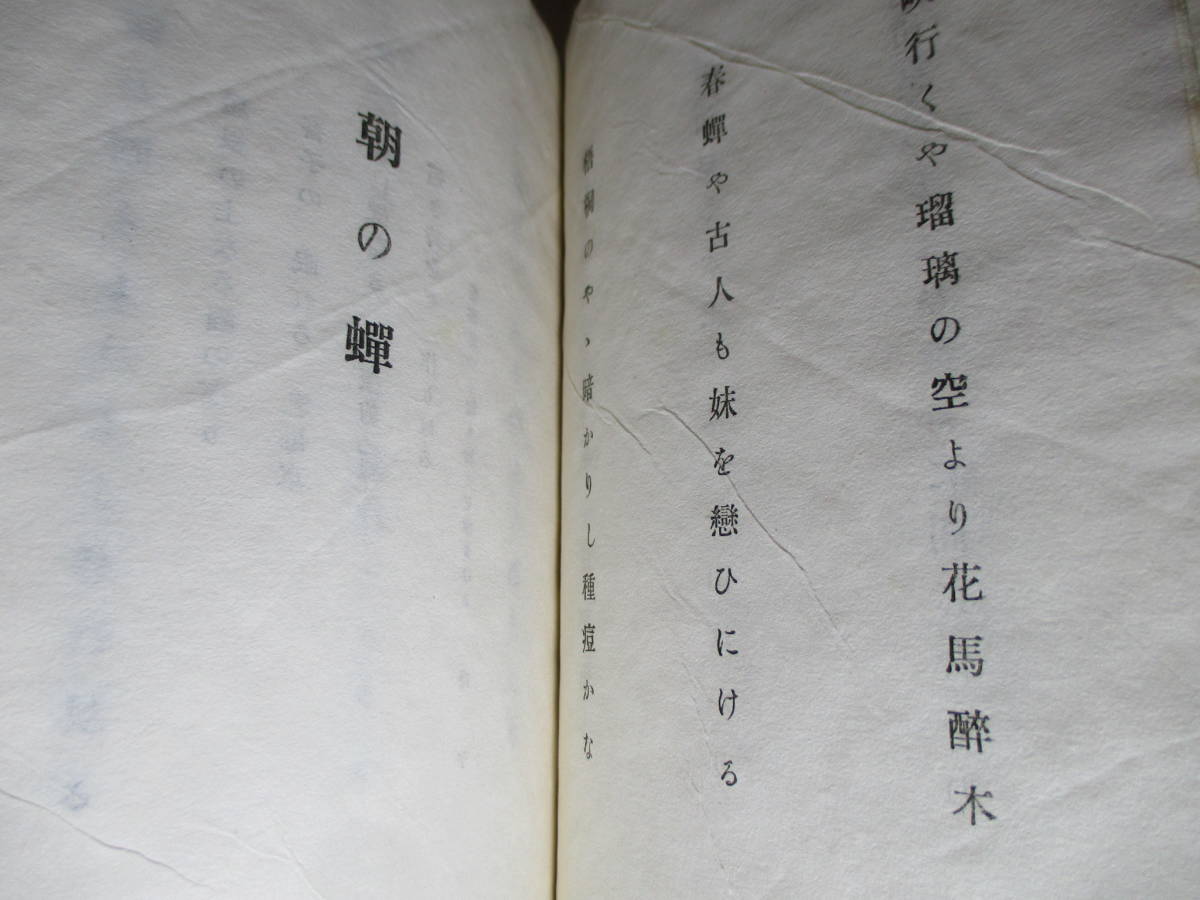 行くや瑠璃の空より花馬醉木
春蟬や古人も妹を戀ひにける
梧桐のやゝ暗かりし種痘かな
朝の蟬